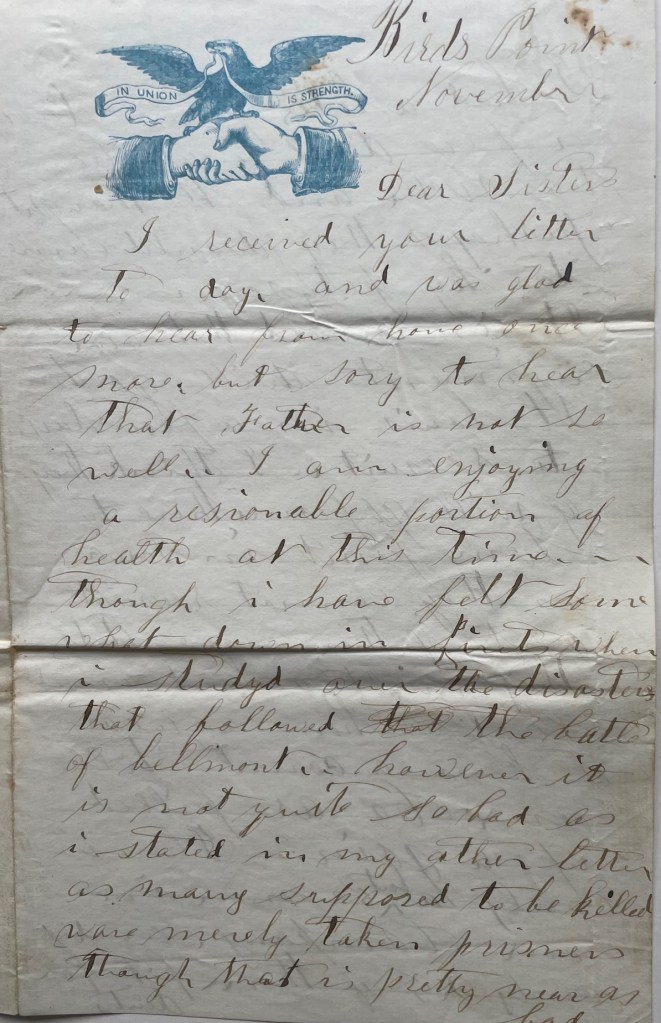 IN UNION IS STRENGTH.
Birds Point
November
Dear Sister
I received your letter
to day. and was glad
to hear from home once
more. but sory to hear
that Father is not so
well.. I am enjoying
a resionable portion of
health at this time
though i have felt some
what down in when
i studyd over the disasters
that followed that the batle
of bellmont.. however it
is not quite so bad as
i stated in my other letter
as many supposed to be killed
ware merely taken prisners
though that is pretty near as
bad